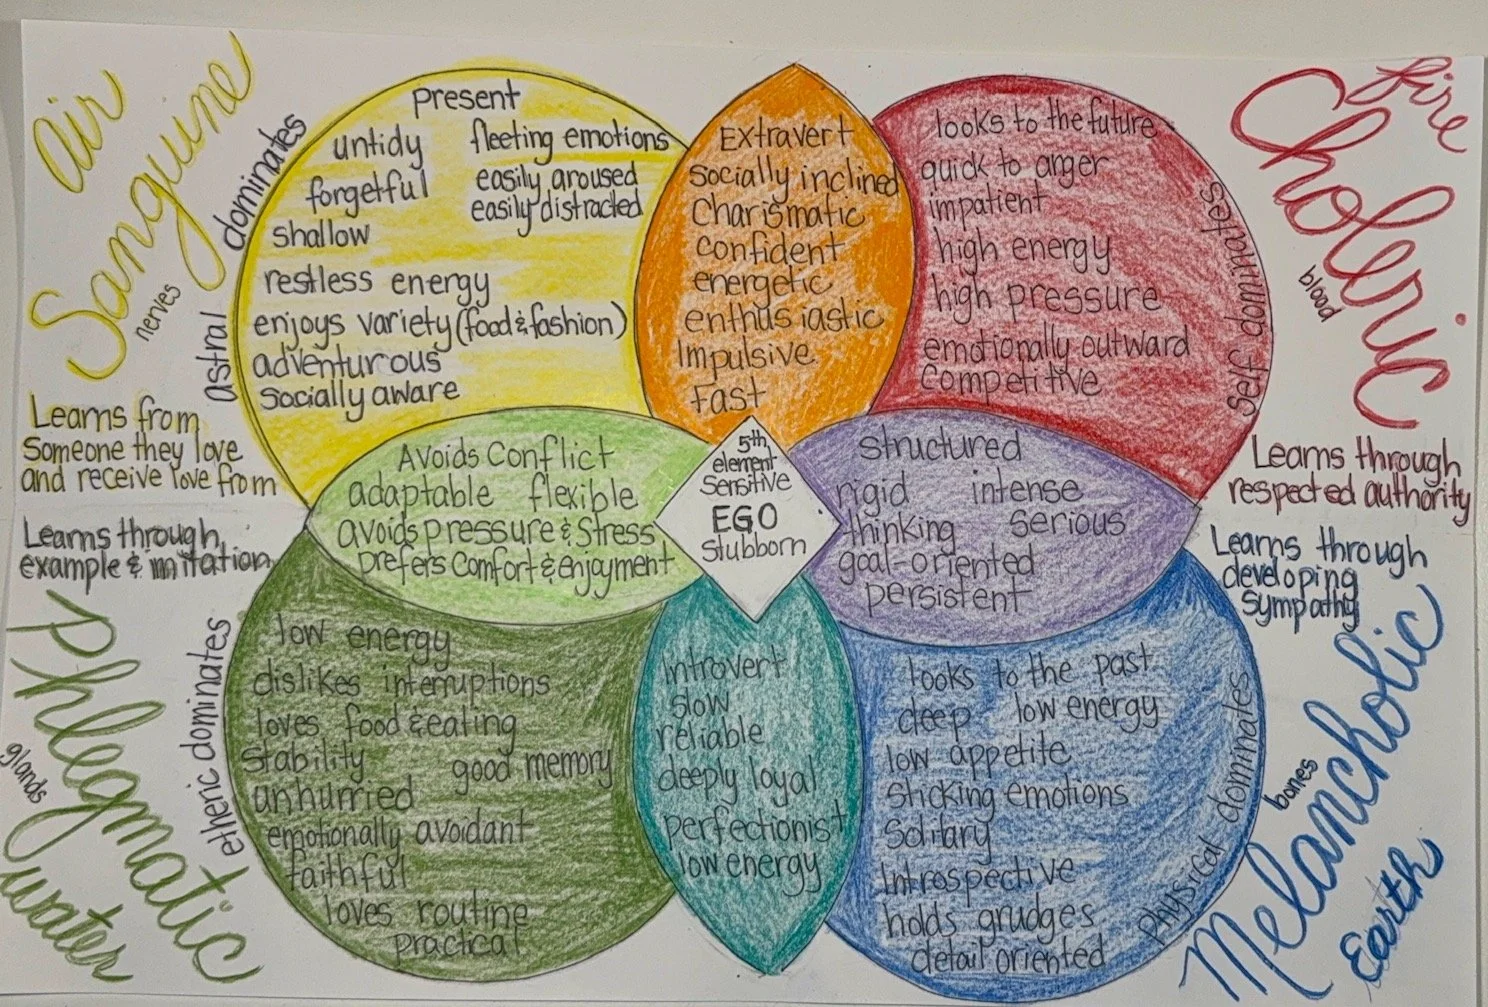 air
Sanguine
nerves
astral dominates
present
untidy
fleeting emotions
forgetful
easily aroused
easily distracted
shallow
restless energy
enjoys variety (food & fashion)
adventurous
socially aware
Learns from
someone they love
and receive love from
Extravert
Socially inclined
Charismatic
confident
energetic
enthusiastic
Impulsive
Fast
fire
Choleric
blood
Self dominates
looks to the future
quick to anger
impatient
high energy
high pressure
emotionally outward
competitive
Learns through
respected authority
Avoids Conflict
adaptable flexible
avoids pressure & stress
prefers comfort & enjoyment
5th
element
Sensitive
EGO
stubborn
structured
rigid intense
thinking serious
goal-oriented
persistent
Learns through
example & imitation
Phlegmatic
glands
water
etheric dominates
low energy
dislikes interruptions
loves food & eating
stability good memory
unhurried
emotionally avoidant
faithful
loves routine
practical
Introvert
slow
reliable
deeply loyal
perfectionist
low energy
Learns through
developing
sympathy
Melancholic
bones
Earth
Physical dominates
looks to the past
deep low energy
low appetite
sticking emotions
Solitary
Introspective
holds grudges
detail oriented